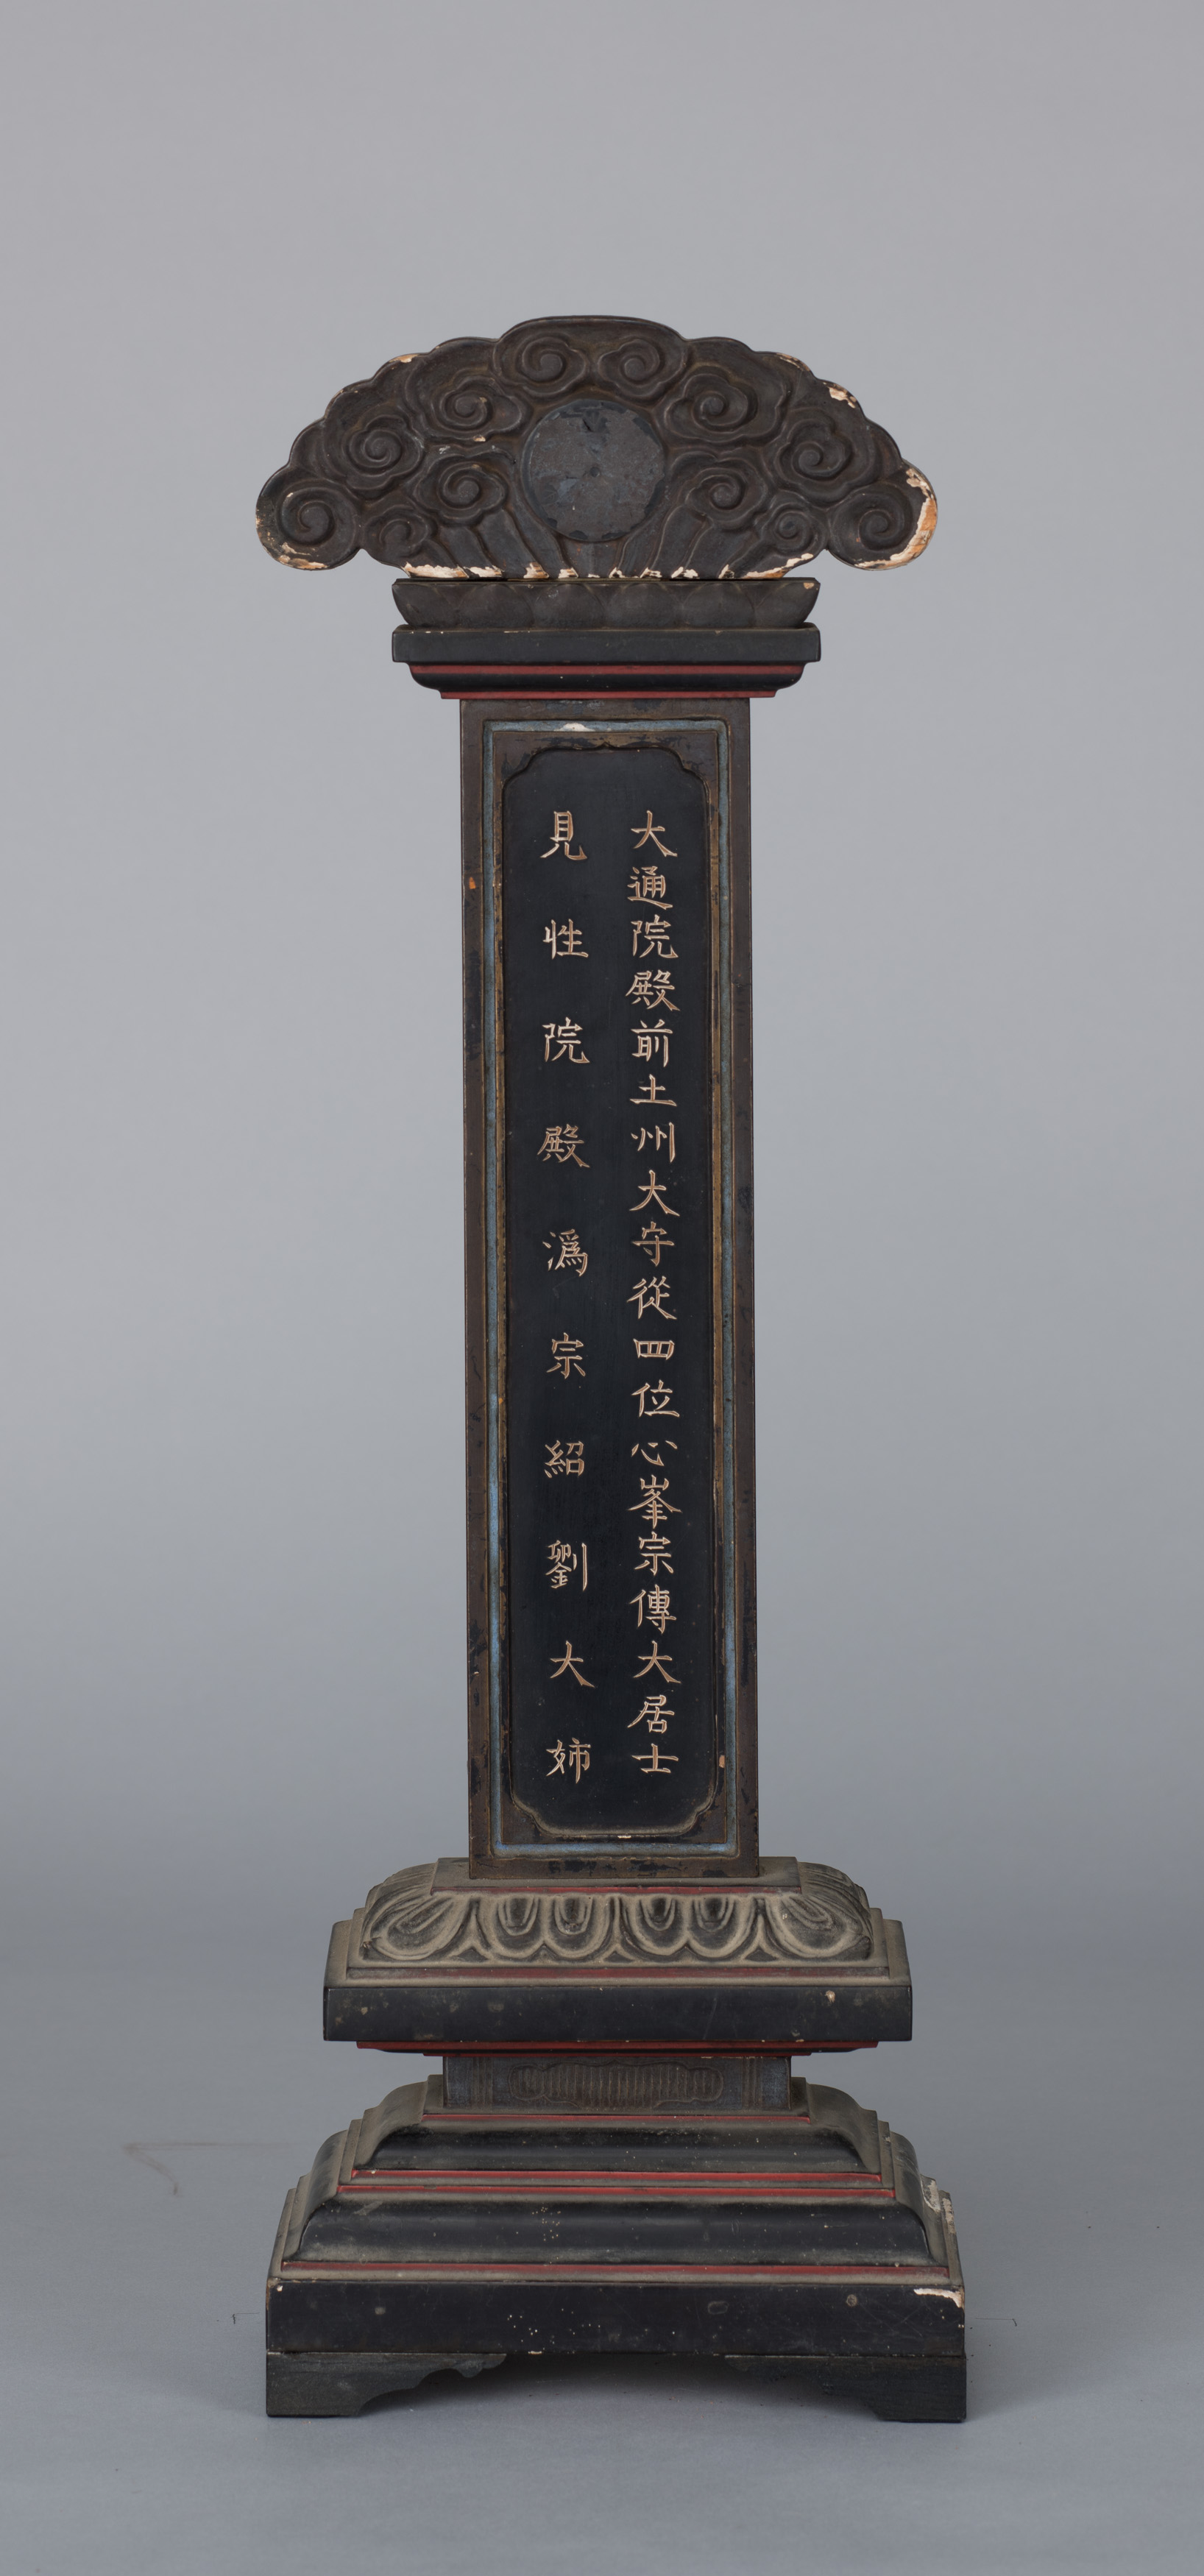 大通院殿前土州大守從四位心峯宗傳大居士
見性院殿潙宗紹劉大姉